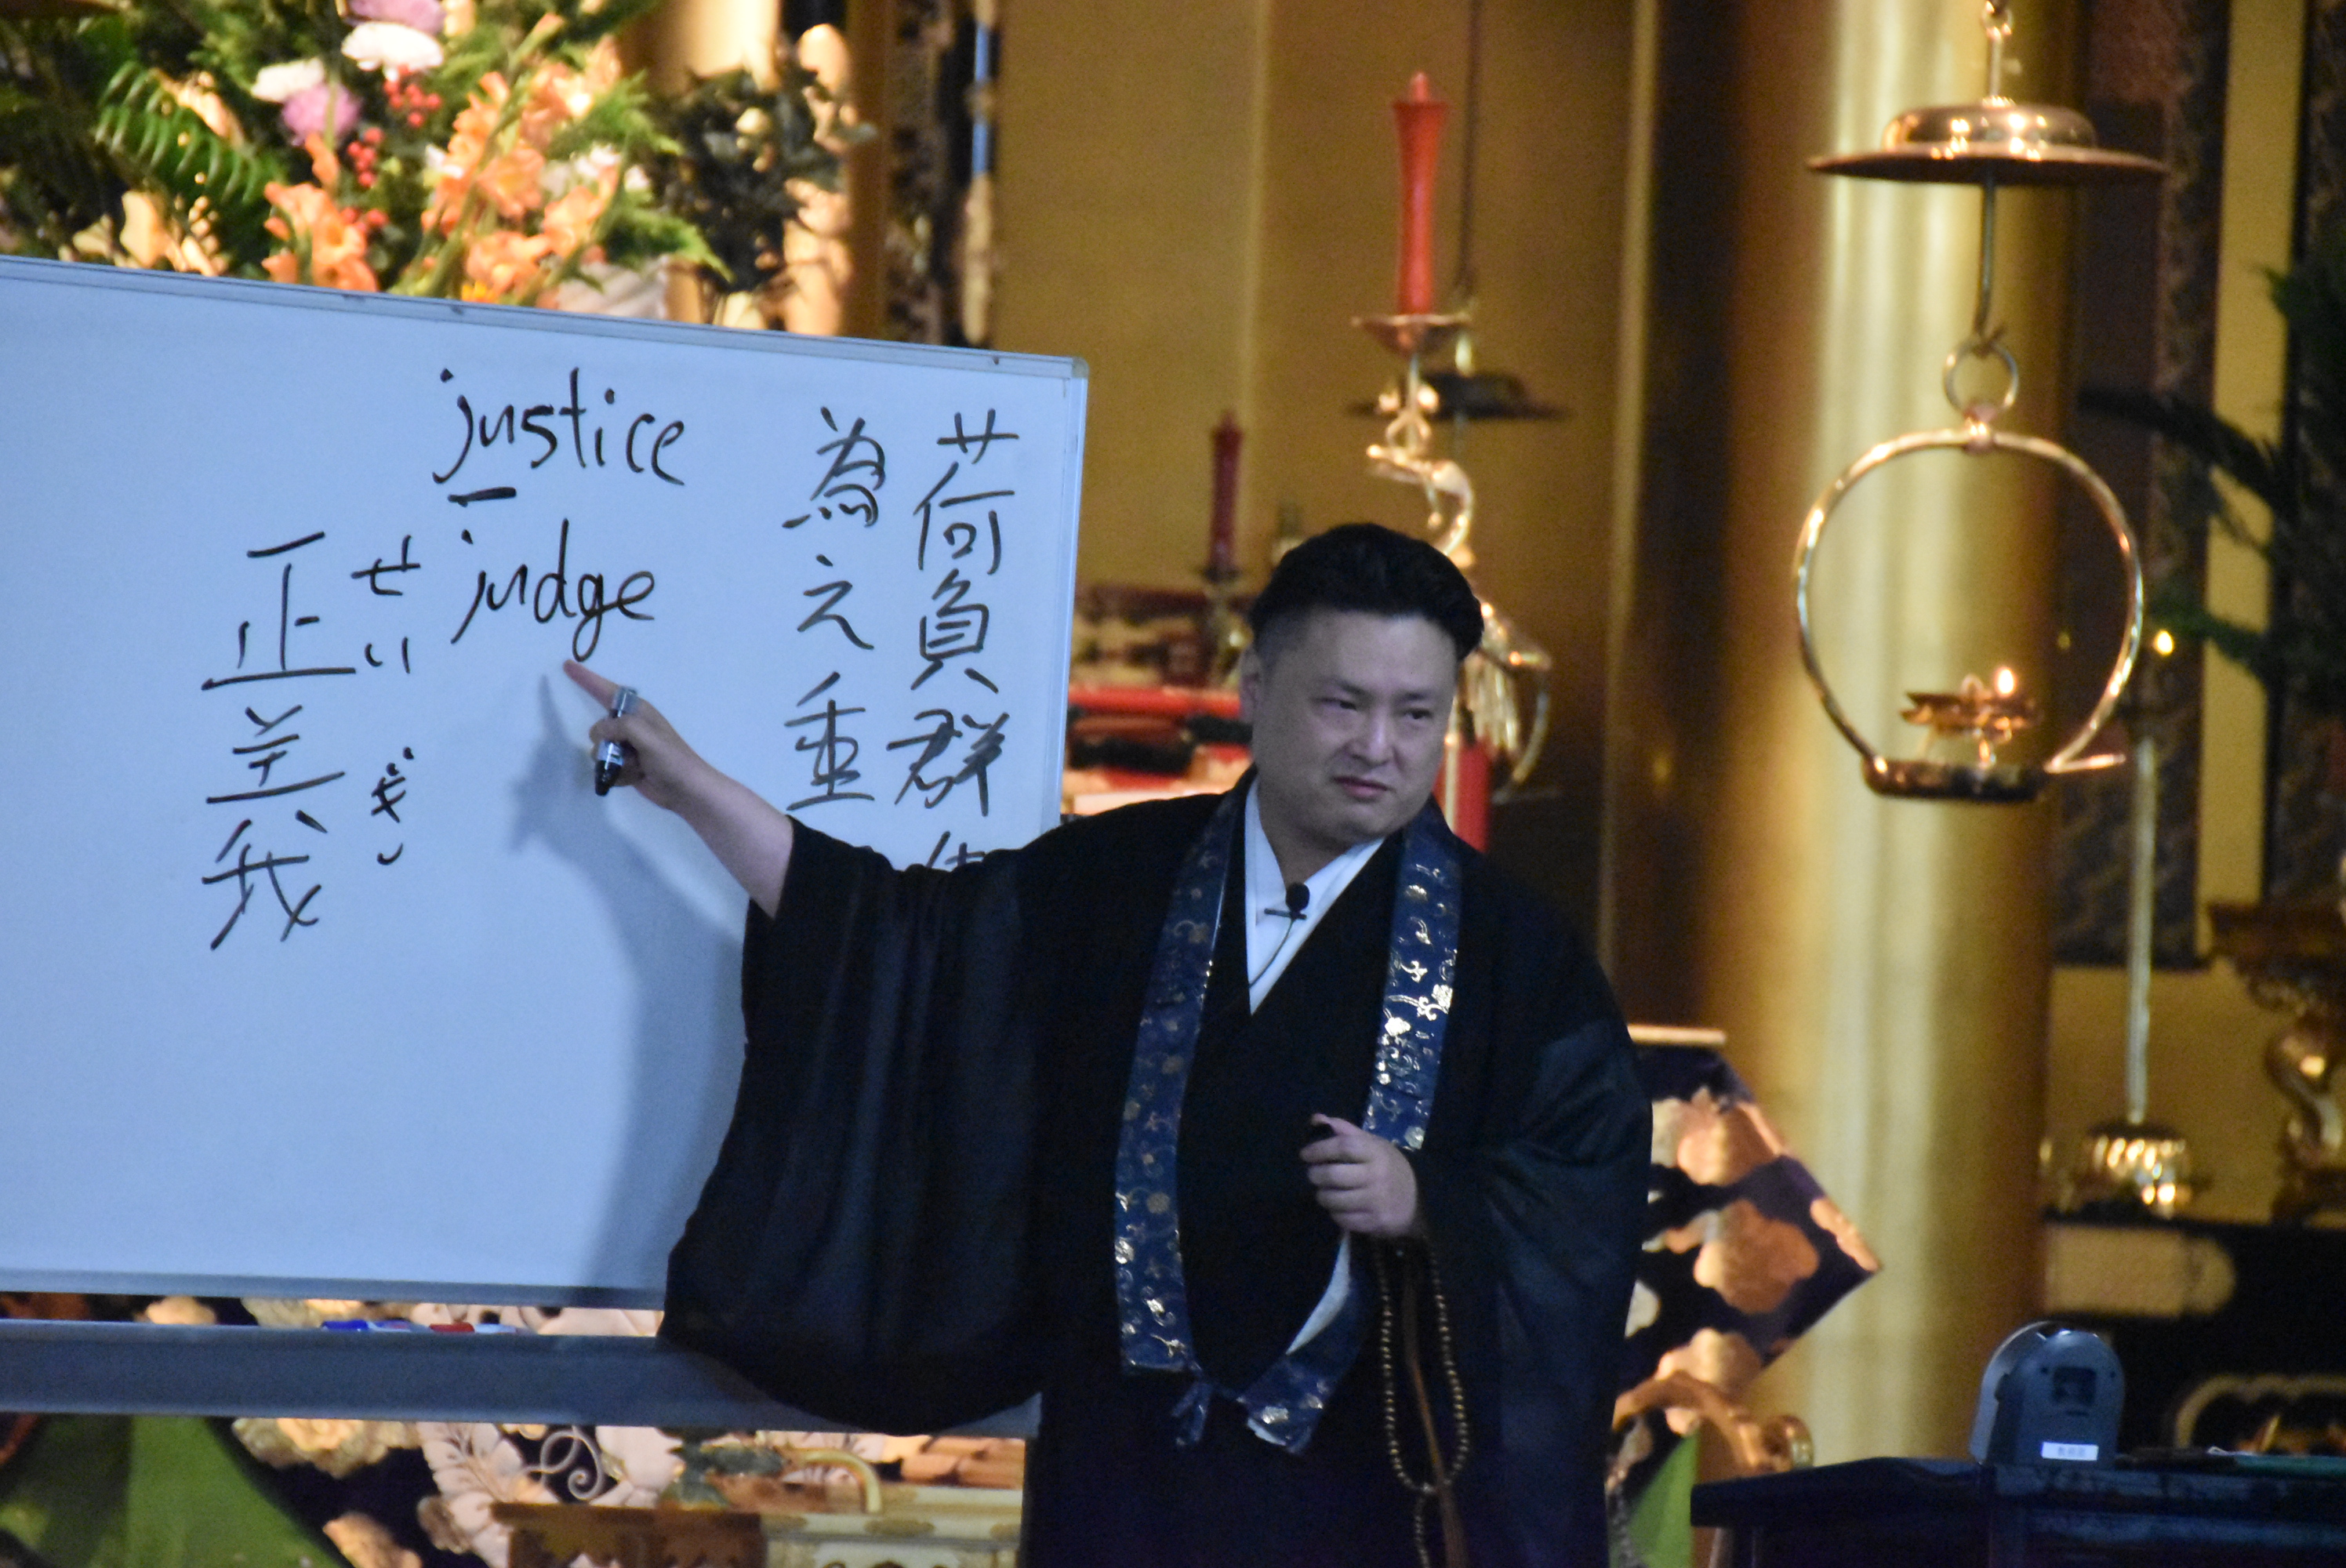 荷負群
為之重
justice
judge
せいぎ
正義